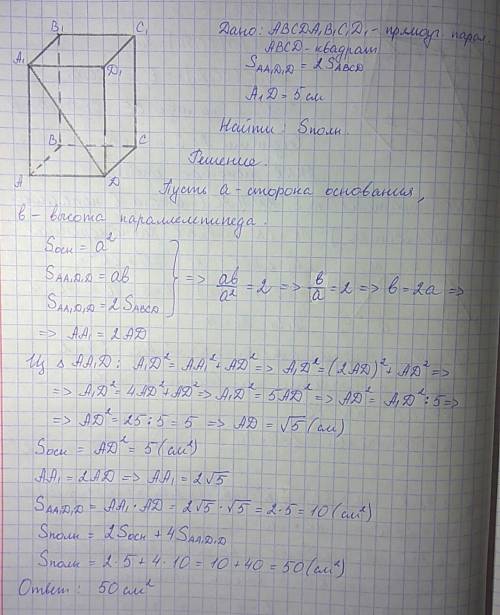 B₁
C₁
A₁
D₁
B
C
A
D
Дано: ABCDA₁B₁C₁D₁ - прямоуг. парал.
ABCD - квадрат
S_AA₁D₁D = 2S_ABCD
A₁D = 5 см
Найти: Sполн.
Решение.
Пусть a - сторона основания,
в - высота параллелепипеда.
Sосн = a²
S_AA₁D₁D = aв
S_AA₁D₁D = 2S_ABCD
} => aв/a² = 2 => в/a = 2 => в = 2a =>
=> AA₁ = 2AD
Из △ AA₁D: A₁D² = AA₁² + AD² => A₁D² = (2AD)² + AD² =>
=> A₁D² = 4AD² + AD² => A₁D² = 5AD² => AD² = A₁D² : 5 =>
=> AD² = 25 : 5 = 5 => AD = √5 (см)
Sосн = AD² = 5 (см²)
AA₁ = 2AD => AA₁ = 2√5
S_AA₁D₁D = AA₁ · AD = 2√5 · √5 = 2·5 = 10 (см²)
Sполн = 2Sосн + 4S_AA₁D₁D
Sполн = 2·5 + 4·10 = 10 + 40 = 50 (см²)
Ответ: 50 см²